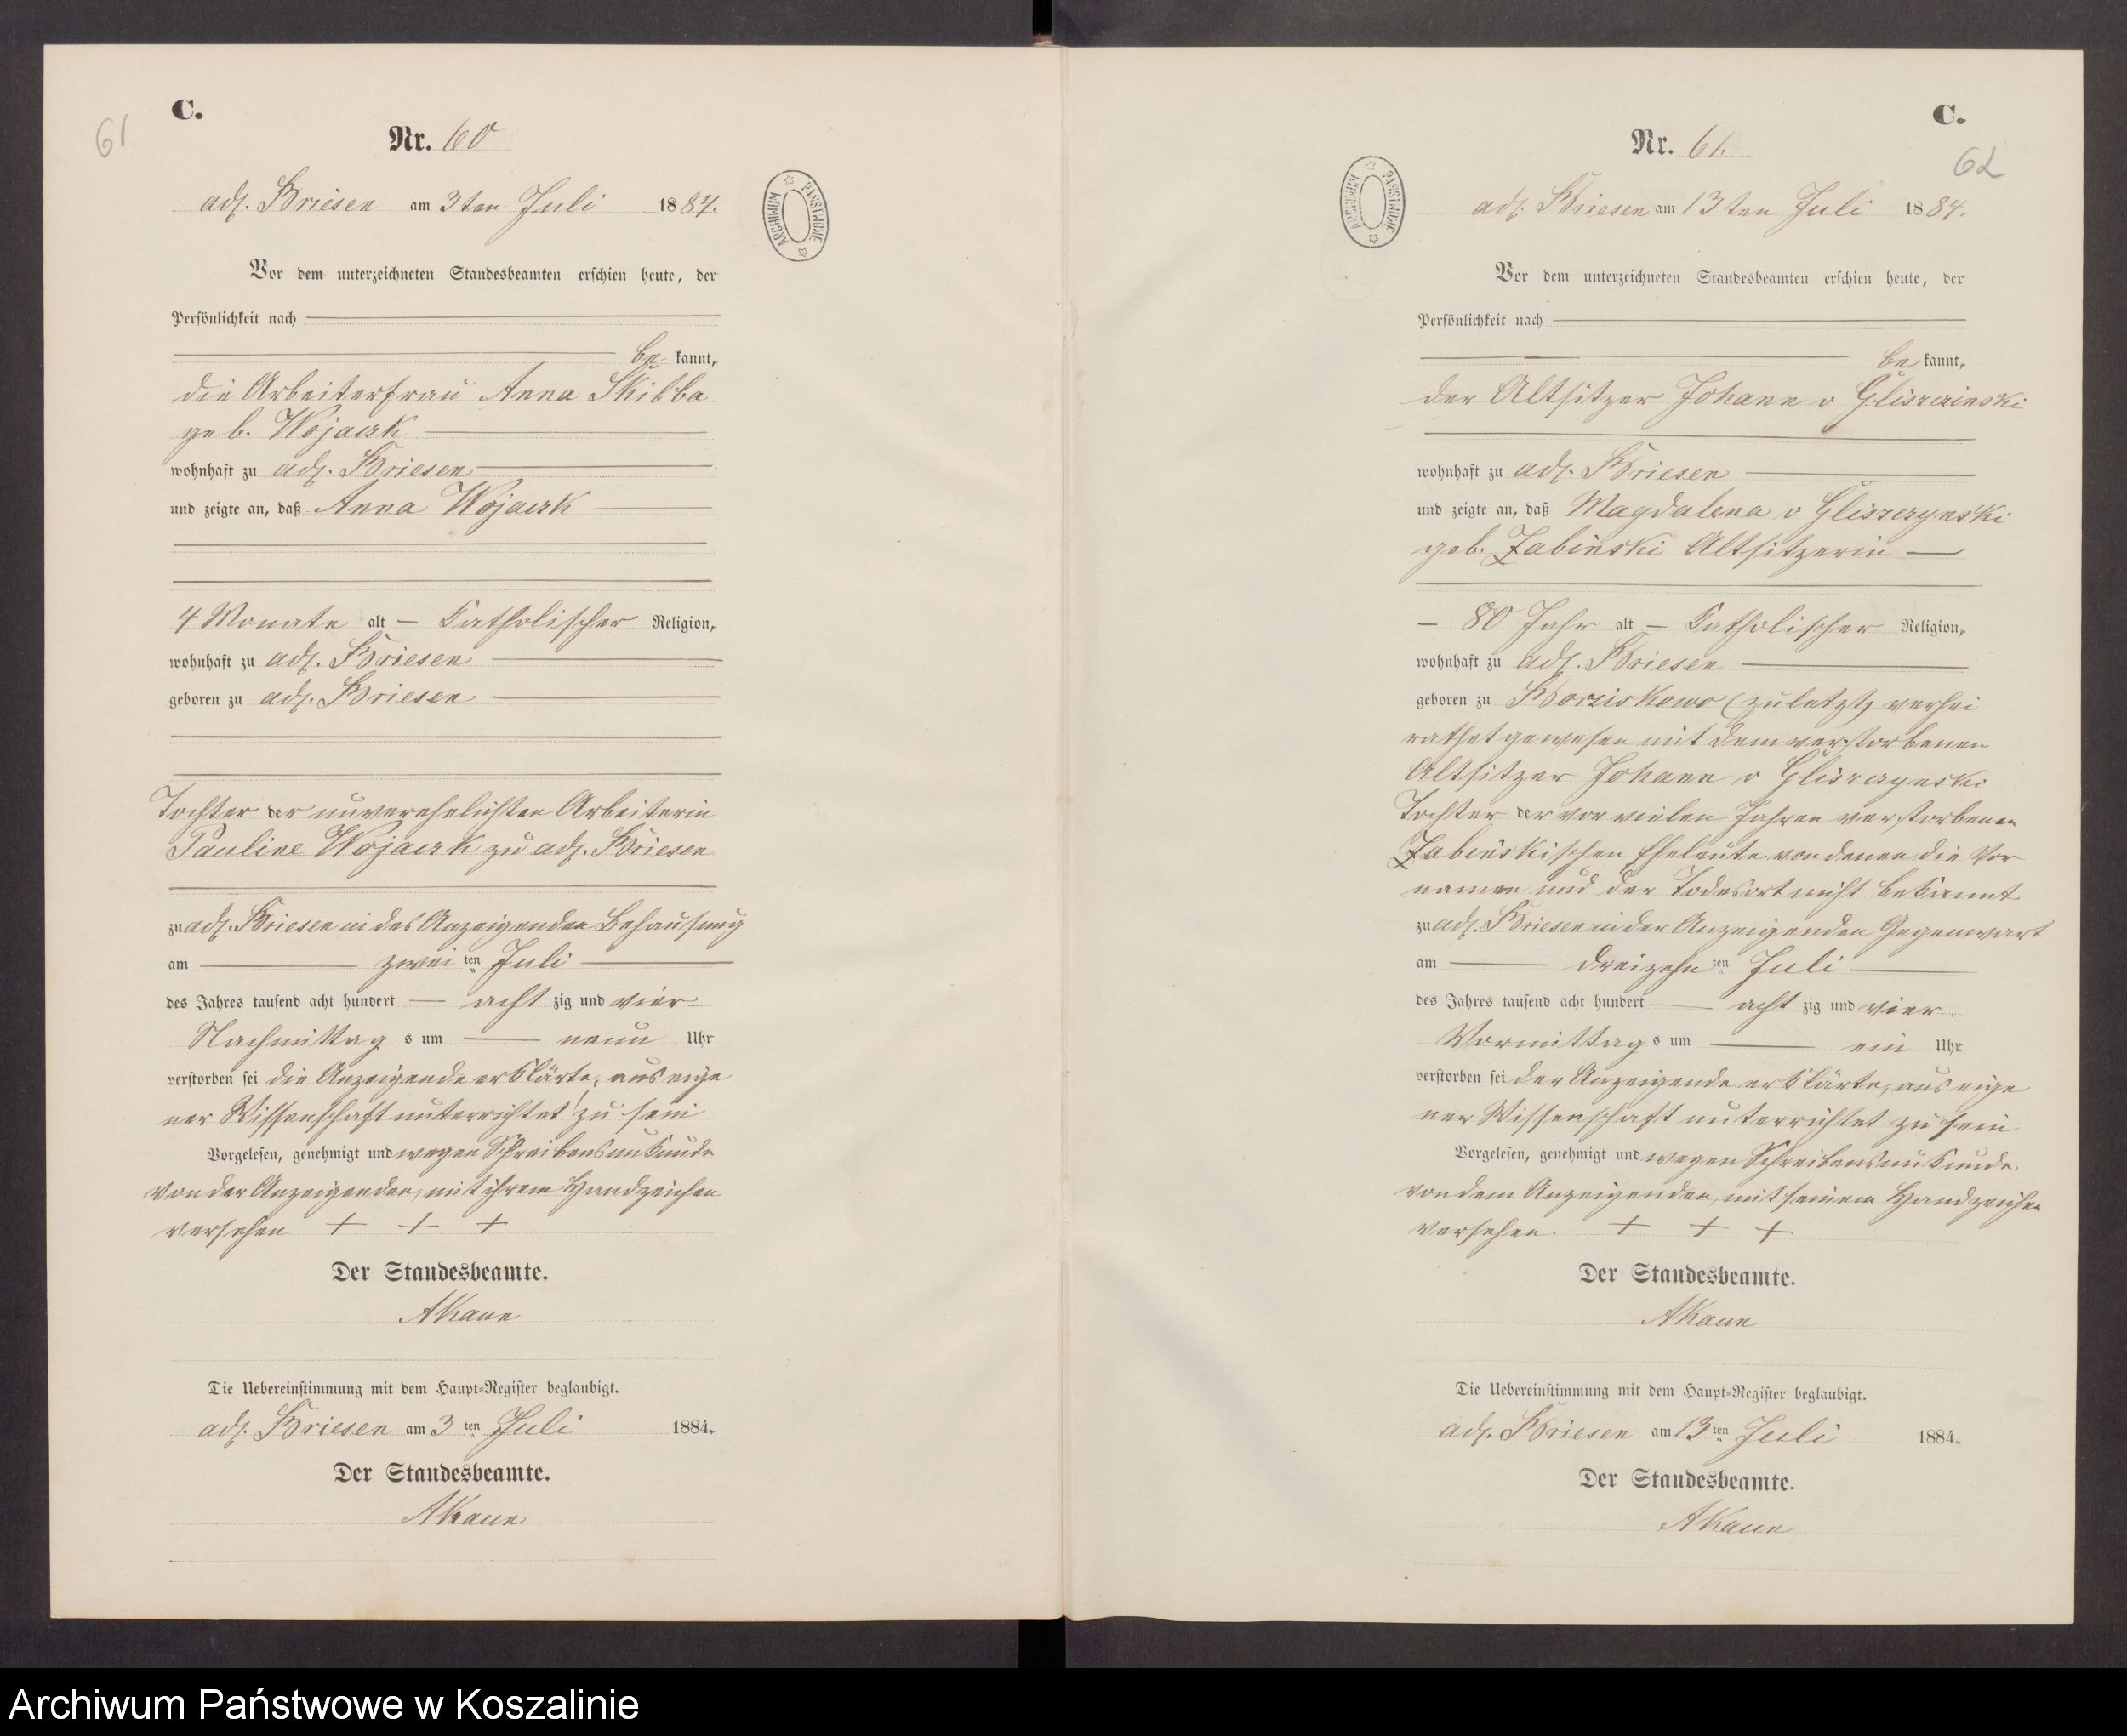 C.
61
Nr. 60
adl. Briesen am 3ten Juli 1884.
ARCHIWUM PAŃSTWOWE
Vor dem unterzeichneten Standesbeamten erschien heute, der
Persönlichkeit nach
be kannt,
die Arbeiterfrau Anna Skibba
geb. Wojaczk
wohnhaft zu adl. Briesen
und zeigte an, daß Anna Wojaczk
4 Monate alt – katholischer Religion,
wohnhaft zu adl. Briesen
geboren zu adl. Briesen
Tochter der unverehelichten Arbeiterin
Pauline Wojaczk zu adl. Briesen
zu adl. Briesen in des Anzeigenden Behausung
am zwei ten Juli
des Jahres tausend acht hundert acht zig und vier
Nachmittag s um neun Uhr
verstorben sei die Anzeigende erklärte, aus eige
ner Wissenschaft unterrichtet zu sein
Vorgelesen, genehmigt und wegen Schreibensunkunde
von der Anzeigenden, mit ihrem Handzeichen
versehen + + +
Der Standesbeamte.
AKaun
Die Uebereinstimmung mit dem Haupt-Register beglaubigt.
adl. Briesen am 3 ten Juli 1884.
Der Standesbeamte.
AKaun
C.
62
Nr. 61.
adl. Briesen am 13ten Juli 1884.
ARCHIWUM PAŃSTWOWE
Vor dem unterzeichneten Standesbeamten erschien heute, der
Persönlichkeit nach
be kannt,
der Altsitzer Johann v Gliszczinski
wohnhaft zu adl. Briesen
und zeigte an, daß Magdalena v Gliszczynski
geb. Zabinski Altsitzerin –
– 80 Jahr alt – katholischer Religion,
wohnhaft zu adl. Briesen
geboren zu Borziskowo (zuletzt) verhei
rathet gewesen mit dem verstorbenen
Altsitzer Johann v Gliszczynski
Tochter der vor vielen Jahren verstorbenen
Zabinskischen Eheleute von denen die Vor
namen und der Todesort nicht bekannt
zu adl. Briesen in der Anzeigenden Gegenwart
am dreizehn ten Juli
des Jahres tausend acht hundert acht zig und vier.
Vormittag s um ein Uhr
verstorben sei der Anzeigende erklärte, aus eige
ner Wissenschaft unterrichtet zu sein
Vorgelesen, genehmigt und wegen Schreibensunkunde
von dem Anzeigenden, mit seinem Handzeichen
versehen. + + +
Der Standesbeamte.
AKaun
Die Uebereinstimmung mit dem Haupt-Register beglaubigt.
adl. Briesen am 13 ten Juli 1884.
Der Standesbeamte.
AKaun
Archiwum Państwowe w Koszalinie